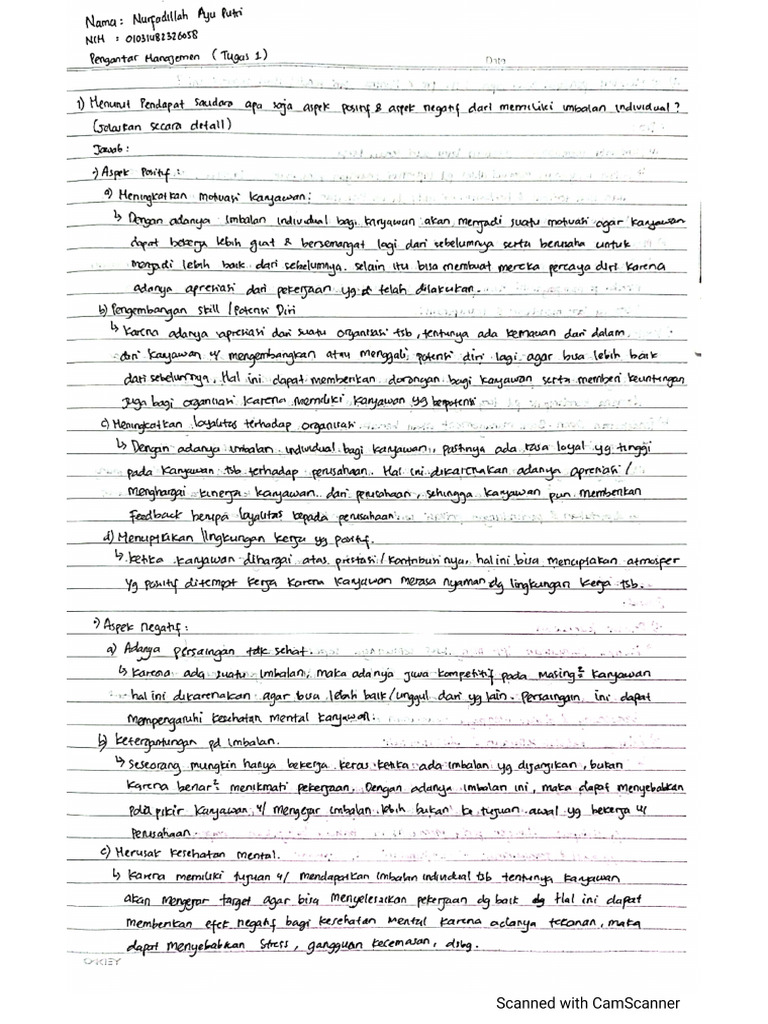 Nama : Nurfadillah Ayu Putri
NIM : 01031482326058
Pengantar Manajemen ( Tugas 1 )
Date
1) Menurut Pendapat Saudara apa saja aspek positif & aspek negatif dari memiliki imbalan individual ?
(Jelaskan secara detail)
Jawab :
•) Aspek Positif :
a) Meningkatkan motivasi karyawan :
↳ Dengan adanya imbalan individual bagi karyawan akan menjadi suatu motivasi agar karyawan
dapat bekerja lebih giat & bersemangat lagi dari sebelumnya serta berusaha untuk
menjadi lebih baik dari sebelumnya. selain itu bisa membuat mereka percaya diri karena
adanya apresiasi dari pekerjaan yg telah dilakukan.
b) Pengembangan skill / Potensi Diri
↳ Karena adanya apresiasi dari suatu organisasi tsb, tentunya ada kemauan dari dalam
diri karyawan u/ mengembangkan atau menggali potensi diri lagi agar bisa lebih baik
dari sebelumnya. Hal ini dapat memberikan dorongan bagi karyawan serta memberi keuntungan
juga bagi organisasi karena memiliki karyawan yg berpotensi
c) Meningkatkan loyalitas terhadap organisasi
↳ Dengan adanya imbalan individual bagi karyawan, pastinya ada rasa loyal yg tinggi
pada karyawan tsb terhadap perusahaan. Hal ini dikarenakan adanya apresiasi /
menghargai kinerja karyawan dari perusahaan, sehingga karyawan pun memberikan
feedback berupa loyalitas kepada perusahaan.
d) Menciptakan lingkungan kerja yg positif.
↳ Ketika karyawan dihargai atas prestasi / kontribusinya, hal ini bisa menciptakan atmosper
yg positif ditempat kerja karena karyawan merasa nyaman dg lingkungan kerja tsb.
•) Aspek negatif :
a) Adanya persaingan tdk sehat.
↳ Karena ada suatu imbalan, maka adanya jiwa kompetitif pada masing² karyawan
hal ini dikarenakan agar bisa lebih baik/unggul dari yg lain. Persaingan ini dapat
mempengaruhi kesehatan mental karyawan.
b) Ketergantungan pd imbalan.
↳ Seseorang mungkin hanya bekerja keras ketika ada imbalan yg dijanjikan, bukan
karena benar² menikmati pekerjaan. Dengan adanya imbalan ini, maka dapat menyebabkan
pola pikir karyawan u/ mengejar imbalan lebih bukan ke tujuan awal yg bekerja u/
perusahaan.
c) Merusak kesehatan mental.
↳ Karena memiliki tujuan u/ mendapatkan imbalan individual tsb tentunya karyawan
akan mengejar target agar bisa menyelesaikan pekerjaan dg baik dg Hal ini dapat
memberikan efek negatif bagi kesehatan mental karena adanya tekanan, maka
dapat menyebabkan stress, gangguan kecemasan, dsbg.
Scanned with CamScanner